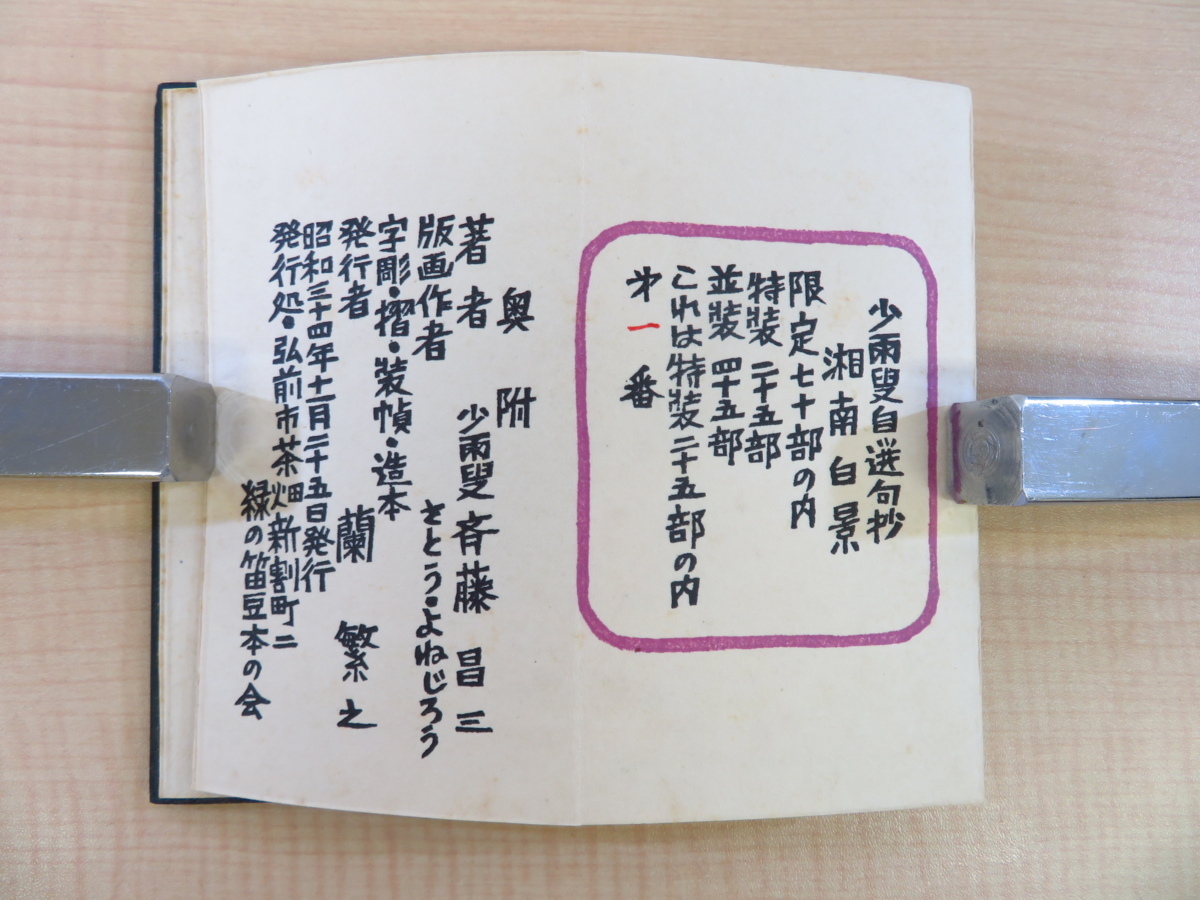 少雨叟自選句抄
湘南白景
限定七十部の内
特装 二十五部
並装 四十五部
これは特装二十五部の内
才一番
奥附
著者 少雨叟斉藤昌三
版画作者 さとう・よねじろう
字彫・摺・装幀・造本
発行者 蘭繁之
昭和三十四年十一月二十五日発行
発行処・弘前市茶畑新割町二
緑の笛豆本の会